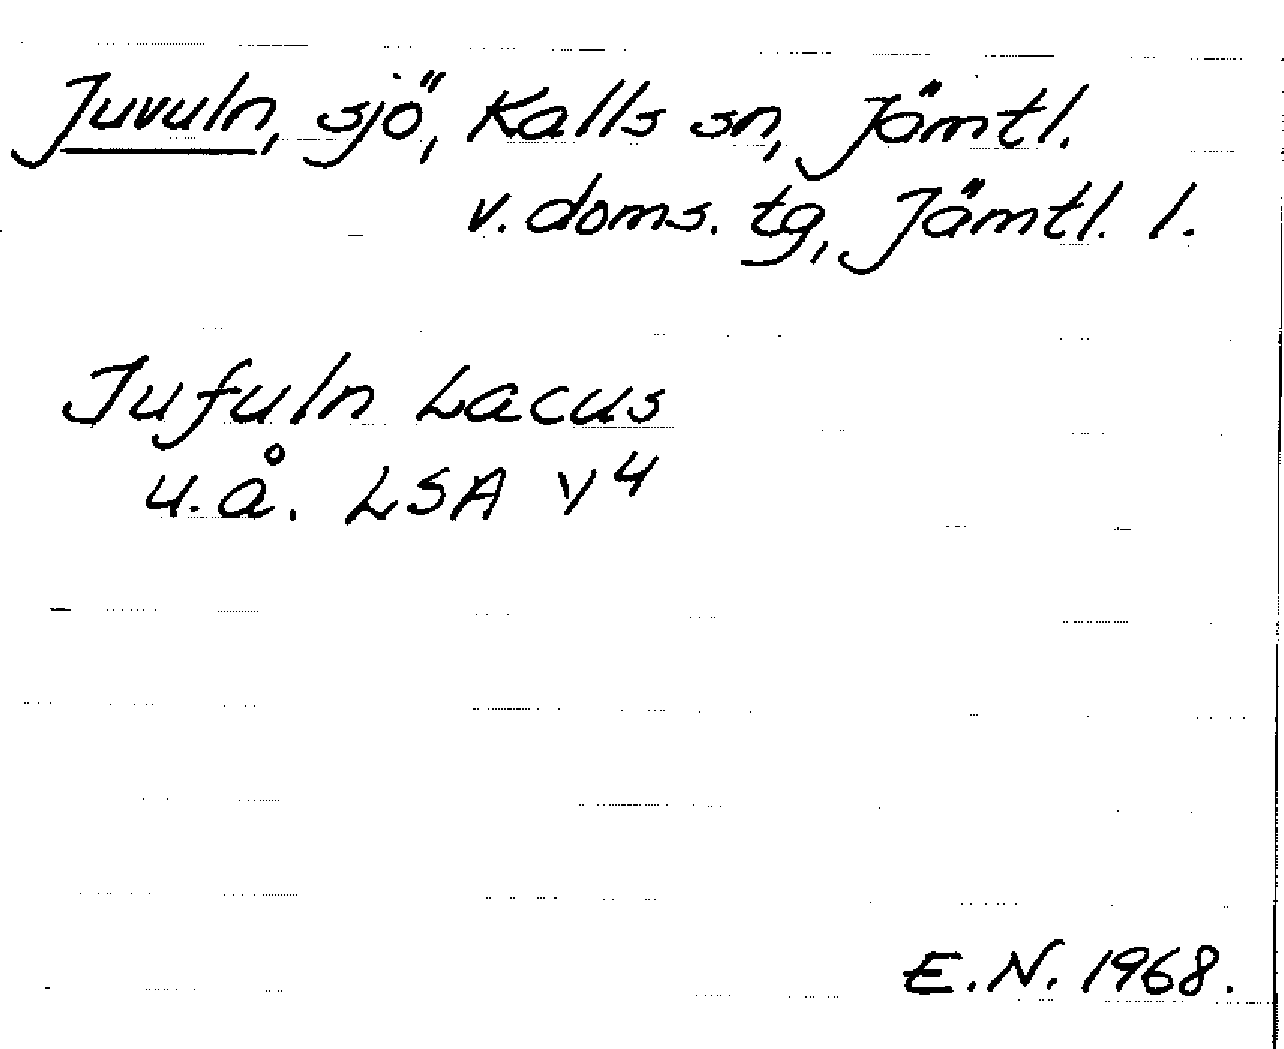 Juvuln, sjö, Kalls sn, Jämtl.
v. doms. tg, Jämtl. l.
Jufuln Lacus
u.å. LSA V 4
E.N. 1968.